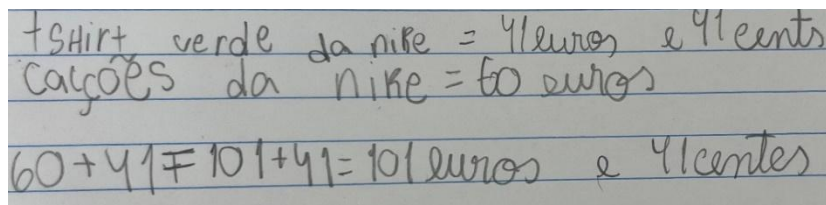 tsHirt verde da nike = 41 euros e 41 cents
calções da nike = 60 euros
60 + 41 = 101 + 41 = 101 euros e 41 centes